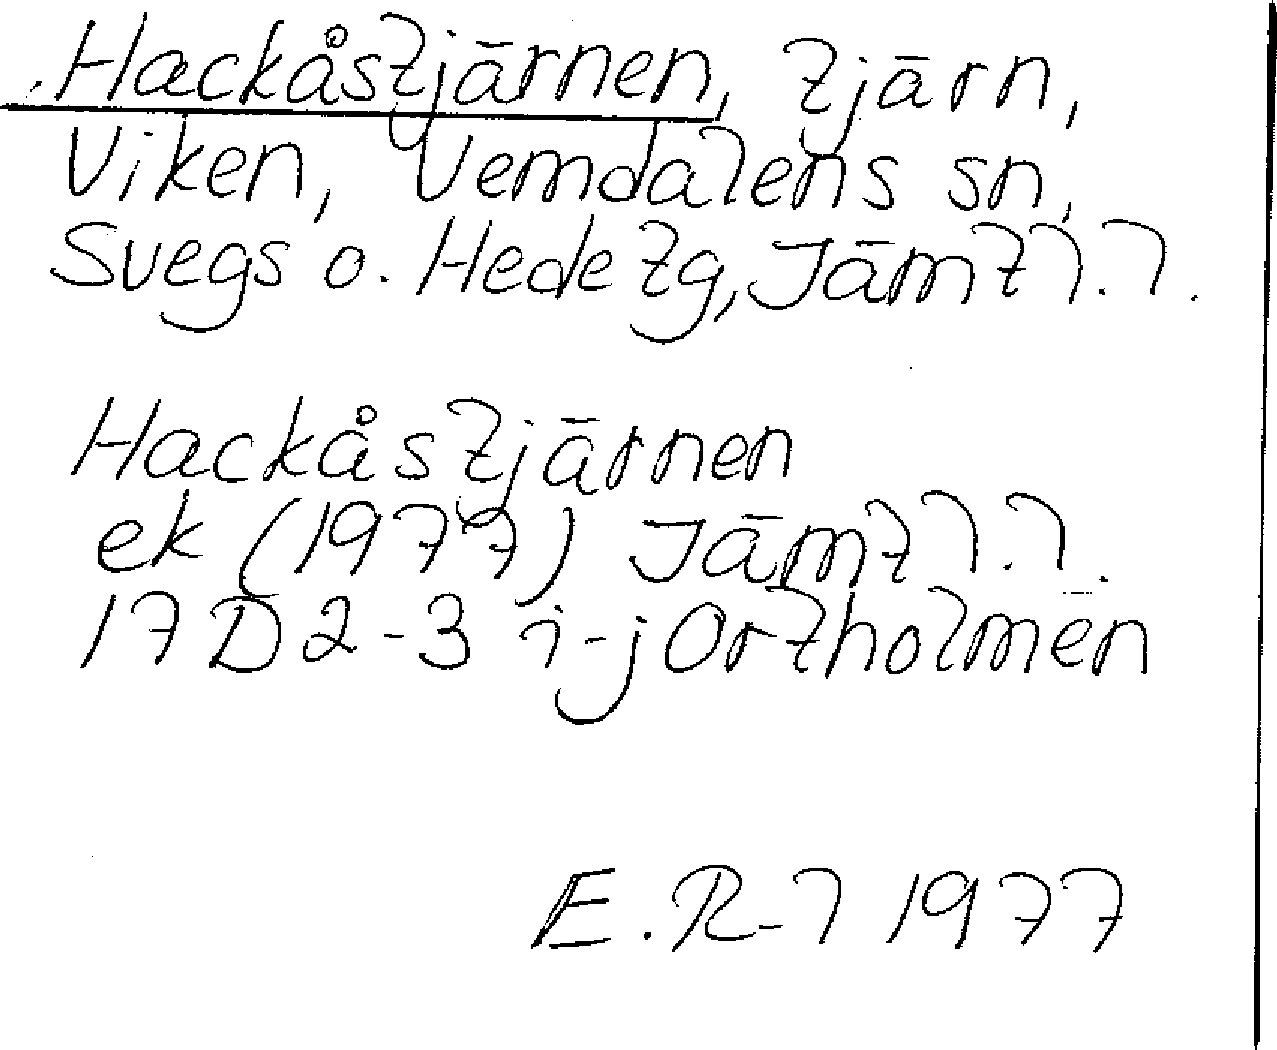 Hackåstjärnen, tjärn,
Viken, Vemdalens sn,
Svegs o. Hede tg, Jämtl. l.
Hackåstjärnen
ek (1977) Jämtl. l.
17 D 2-3 i-j Ortholmen
E. R-l 1977